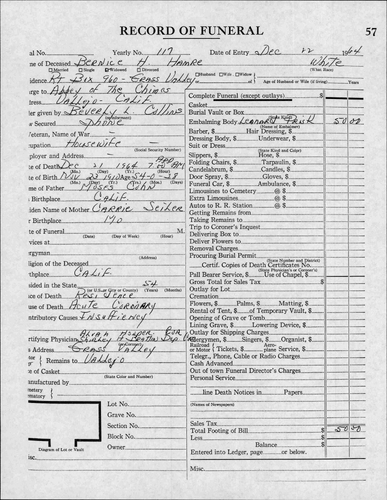 RECORD OF FUNERAL 57
al No. Yearly No. 117 Date of Entry Dec 22 1964
me of Deceased Bernice H. Hamre White
Married Single Widowed Divorced Husband Wife Widow (What Race)
idence Rt Box 960 - Grass Valley Age of Husband or Wife (if living) Years
arge to Abbey of the Chimes
ress Vallejo - Calif
er given by Beverly L. Collins
w Secured Phone
Veteran, Name of War
upation Housewife
(Social Security Number)
ployer and Address
e of Death Dec 21 1964 7:00 PM
e of Birth Nov 23 1910 Age 54-0-28
me of Father Moses Cohn
Birthplace Calif.
iden Name of Mother Carrie Seiher
Birthplace Mo
te of Funeral M.
(Date) (Day of Week) (Hour)
vices at
rgyman
ligion of the Deceased
thplace Calif
sided in the State 54
(or U.S., City or County) (Years) (Months)
ce of Death Residence
use of Death Acute Coronary
ntributary Causes Insufficency
rtifying Physician
s Address Grass Valley
Remains to Vallejo
e of Casket
(State Color and Number)
nufactured by
metery
matory
Lot No.
Grave No.
Section No.
Block No.
Owner
Diagram of Lot or Vault
isc.
Complete Funeral (except outlays) $
Casket
Burial Vault or Box
(State Kind)
Embalming Body 50 00
(Name of Embalmer)
Barber, $ Hair Dressing, $
Dressing Body, $ Underwear, $
Suit or Dress
(State Kind and Color)
Slippers, $ Hose, $
Folding Chairs, $ Tarpaulin, $
Candelabrum, $ Candles, $
Door Spray, $ Gloves, $
Funeral Car, $ Ambulance, $
Limousines to Cemetery @ $
Extra Limousines @ $
Autos to R. R. Station @ $
Getting Remains from
Taking Remains to
Trip to Coroner's Inquest
Delivering Box to
Deliver Flowers to
Removal Charges
Procuring Burial Permit
(State Number and District)
Certif. Copies of Death Certificates No.
(State Physician's or Coroner's)
Pall Bearer Service, $ Use of Chapel, $
Gross Total for Sales Tax $
Outlay for Lot
Cremation
Flowers, $ Palms, $ Matting, $
Rental of Tent, $ of Temporary Vault, $
Opening of Grave or Tomb
Lining Grave, $ Lowering Device, $
Outlay for Shipping Charges
Clergymen, $ Singers, $ Organist, $
Railroad or Motor Tickets, $ Aeroplane Service, $
Telegr., Phone, Cable or Radio Charges
Cash Advanced
Out of town Funeral Director's Charges
Personal Service
line Death Notices in Papers
(Names of Newspapers)
Sales Tax
Total Footing of Bill $ 50 00
Less $
Balance $
Entered into Ledger, page or below.
Misc.